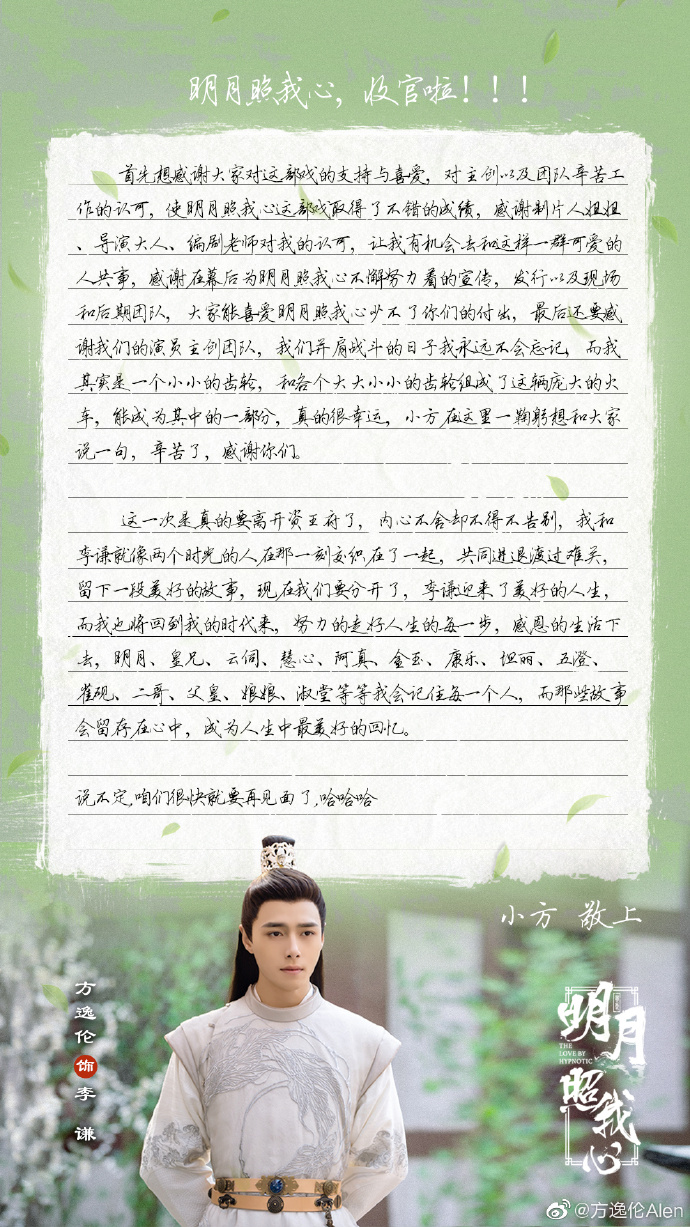 明月照我心，收官啦！！！
首先想感谢大家对这部戏的支持与喜爱，对主创以及团队辛苦工
作的认可，使明月照我心这部戏取得了不错的成绩，感谢制片人姐姐
、导演大人、编剧老师对我的认可，让我有机会去和这样一群可爱的
人共事，感谢在幕后为明月照我心不懈努力着的宣传，发行以及现场
和后期团队，大家能喜爱明月照我心少不了你们的付出，最后还要感
谢我们的演员主创团队，我们并肩战斗的日子我永远不会忘记，而我
其实是一个小小的齿轮，和各个大大小小的齿轮组成了这辆庞大的火
车，能成为其中的一部分，真的很幸运，小方在这里一鞠躬想和大家
说一句，辛苦了，感谢你们。
这一次是真的要离开资王府了，内心不舍却不得不告别，我和
李谦就像两个时光的人在那一刻交织在了一起，共同进退渡过难关，
留下一段美好的故事，现在我们要分开了，李谦迎来了美好的人生，
而我也将回到我的时代来，努力的走好人生的每一步，感恩的生活下
去，明月、皇兄、云伺、慧心、阿真、金玉、康乐、坦丽、五澄、
崔砚、二哥、父皇、娘娘、淑堂等等我会记住每一个人，而那些故事
会留存在心中，成为人生中最美好的回忆。
说不定,咱们很快就要再见面了,哈哈哈
小方 敬上
方逸伦饰李谦
明月照我心
THE
LOVE BY
HYPNOTIC
@方逸伦Alen